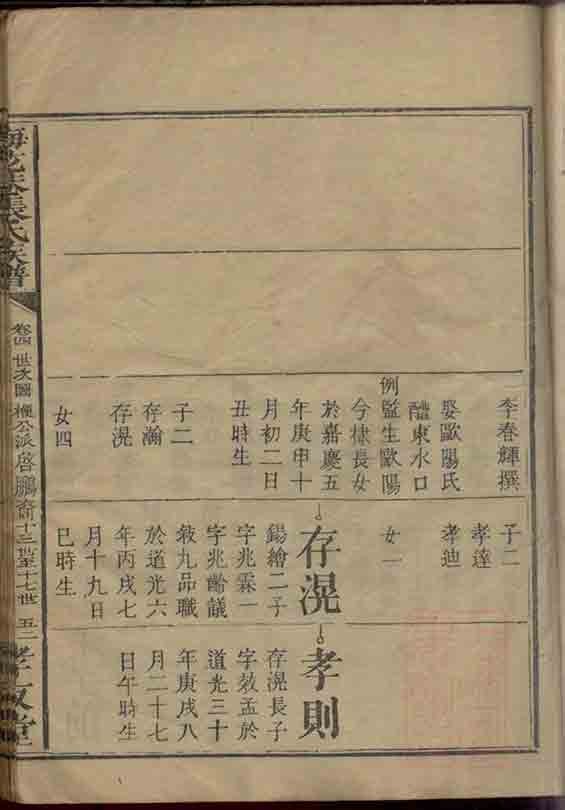 李春輝撰
娶歐陽氏
醴東水口
例監生歐陽
今棣長女
於嘉慶五
年庚申十
月初二日
丑時生
子二
存瀚
存滉
女四
子二
孝達
孝迪
女一
存滉
錫繪二子
字兆霖一
字兆齡議
敘九品職
於道光六
年丙戌七
月十九日
巳時生
孝則
存滉長子
字效孟於
道光三十
年庚戌八
月二十七
日午時生
張氏族譜
卷四 世次圖 公派啓鵬裔十三世至十七世 五二
孝友堂